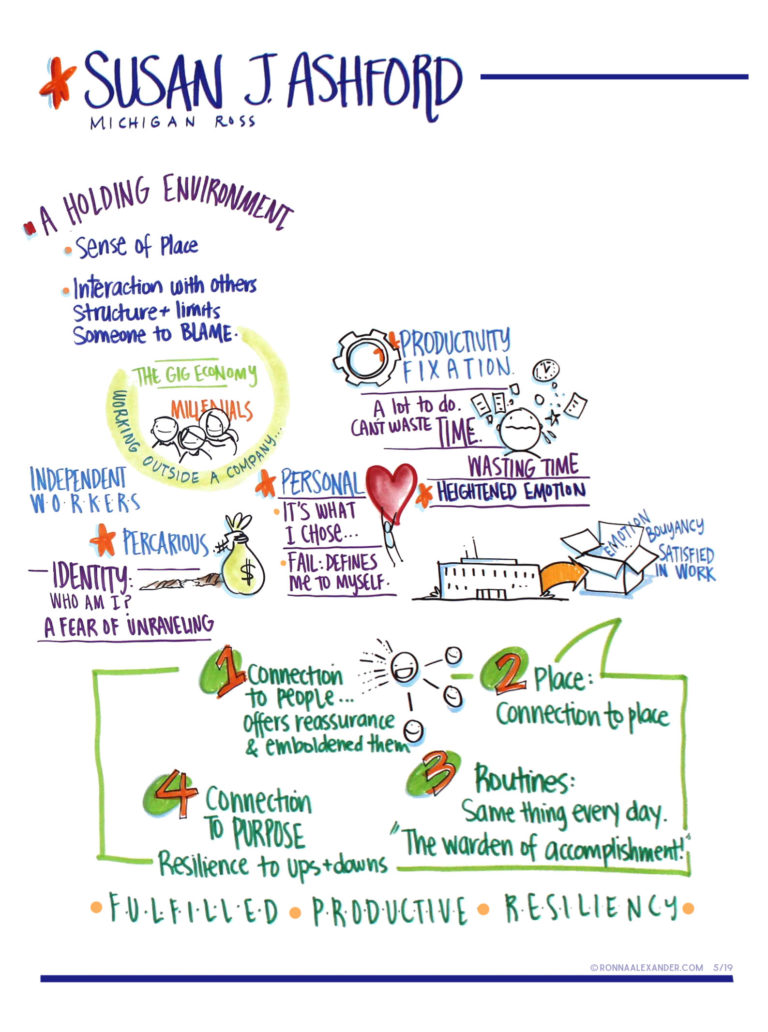 SUSAN J. ASHFORD
MICHIGAN ROSS
A HOLDING ENVIRONMENT
Sense of Place
Interaction with others
Structure + limits
Someone to BLAME.
THE GIG ECONOMY
MILLENIALS
WORKING OUTSIDE A COMPANY...
PRODUCTIVITY
FIXATION.
A lot to do.
CAN'T WASTE TIME.
WASTING TIME
HEIGHTENED EMOTION
INDEPENDENT
W·O·R·K·E·R·S
PERCARIOUS...
$
IDENTITY:
WHO AM I?
A FEAR OF UNRAVELING
PERSONAL
IT'S WHAT
I CHOSE...
FAIL: DEFINES
ME TO MYSELF.
EMOTION
BOUYANCY
SATISFIED
IN WORK
1 Connection
to people...
offers reassurance
& emboldened them
2 Place:
Connection to place
3 Routines:
Same thing every day.
"The warden of accomplishment!"
4 Connection
TO PURPOSE
Resilience to ups + downs
F·U·L·F·I·L·L·E·D • P·R·O·D·U·C·T·I·V·E • R·E·S·I·L·I·E·N·C·Y
© RONNAALEXANDER.COM 5/19